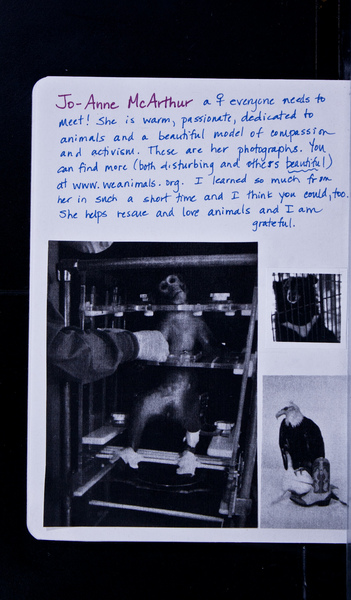 Jo-Anne McArthur a ♀ everyone needs to
meet! She is warm, passionate, dedicated to
animals and a beautiful model of compassion
and activism. These are her photographs. You
can find more (both disturbing and others beautiful)
at www.weanimals.org. I learned so much from
her in such a short time and I think you could, too.
She helps rescue and love animals and I am
grateful.